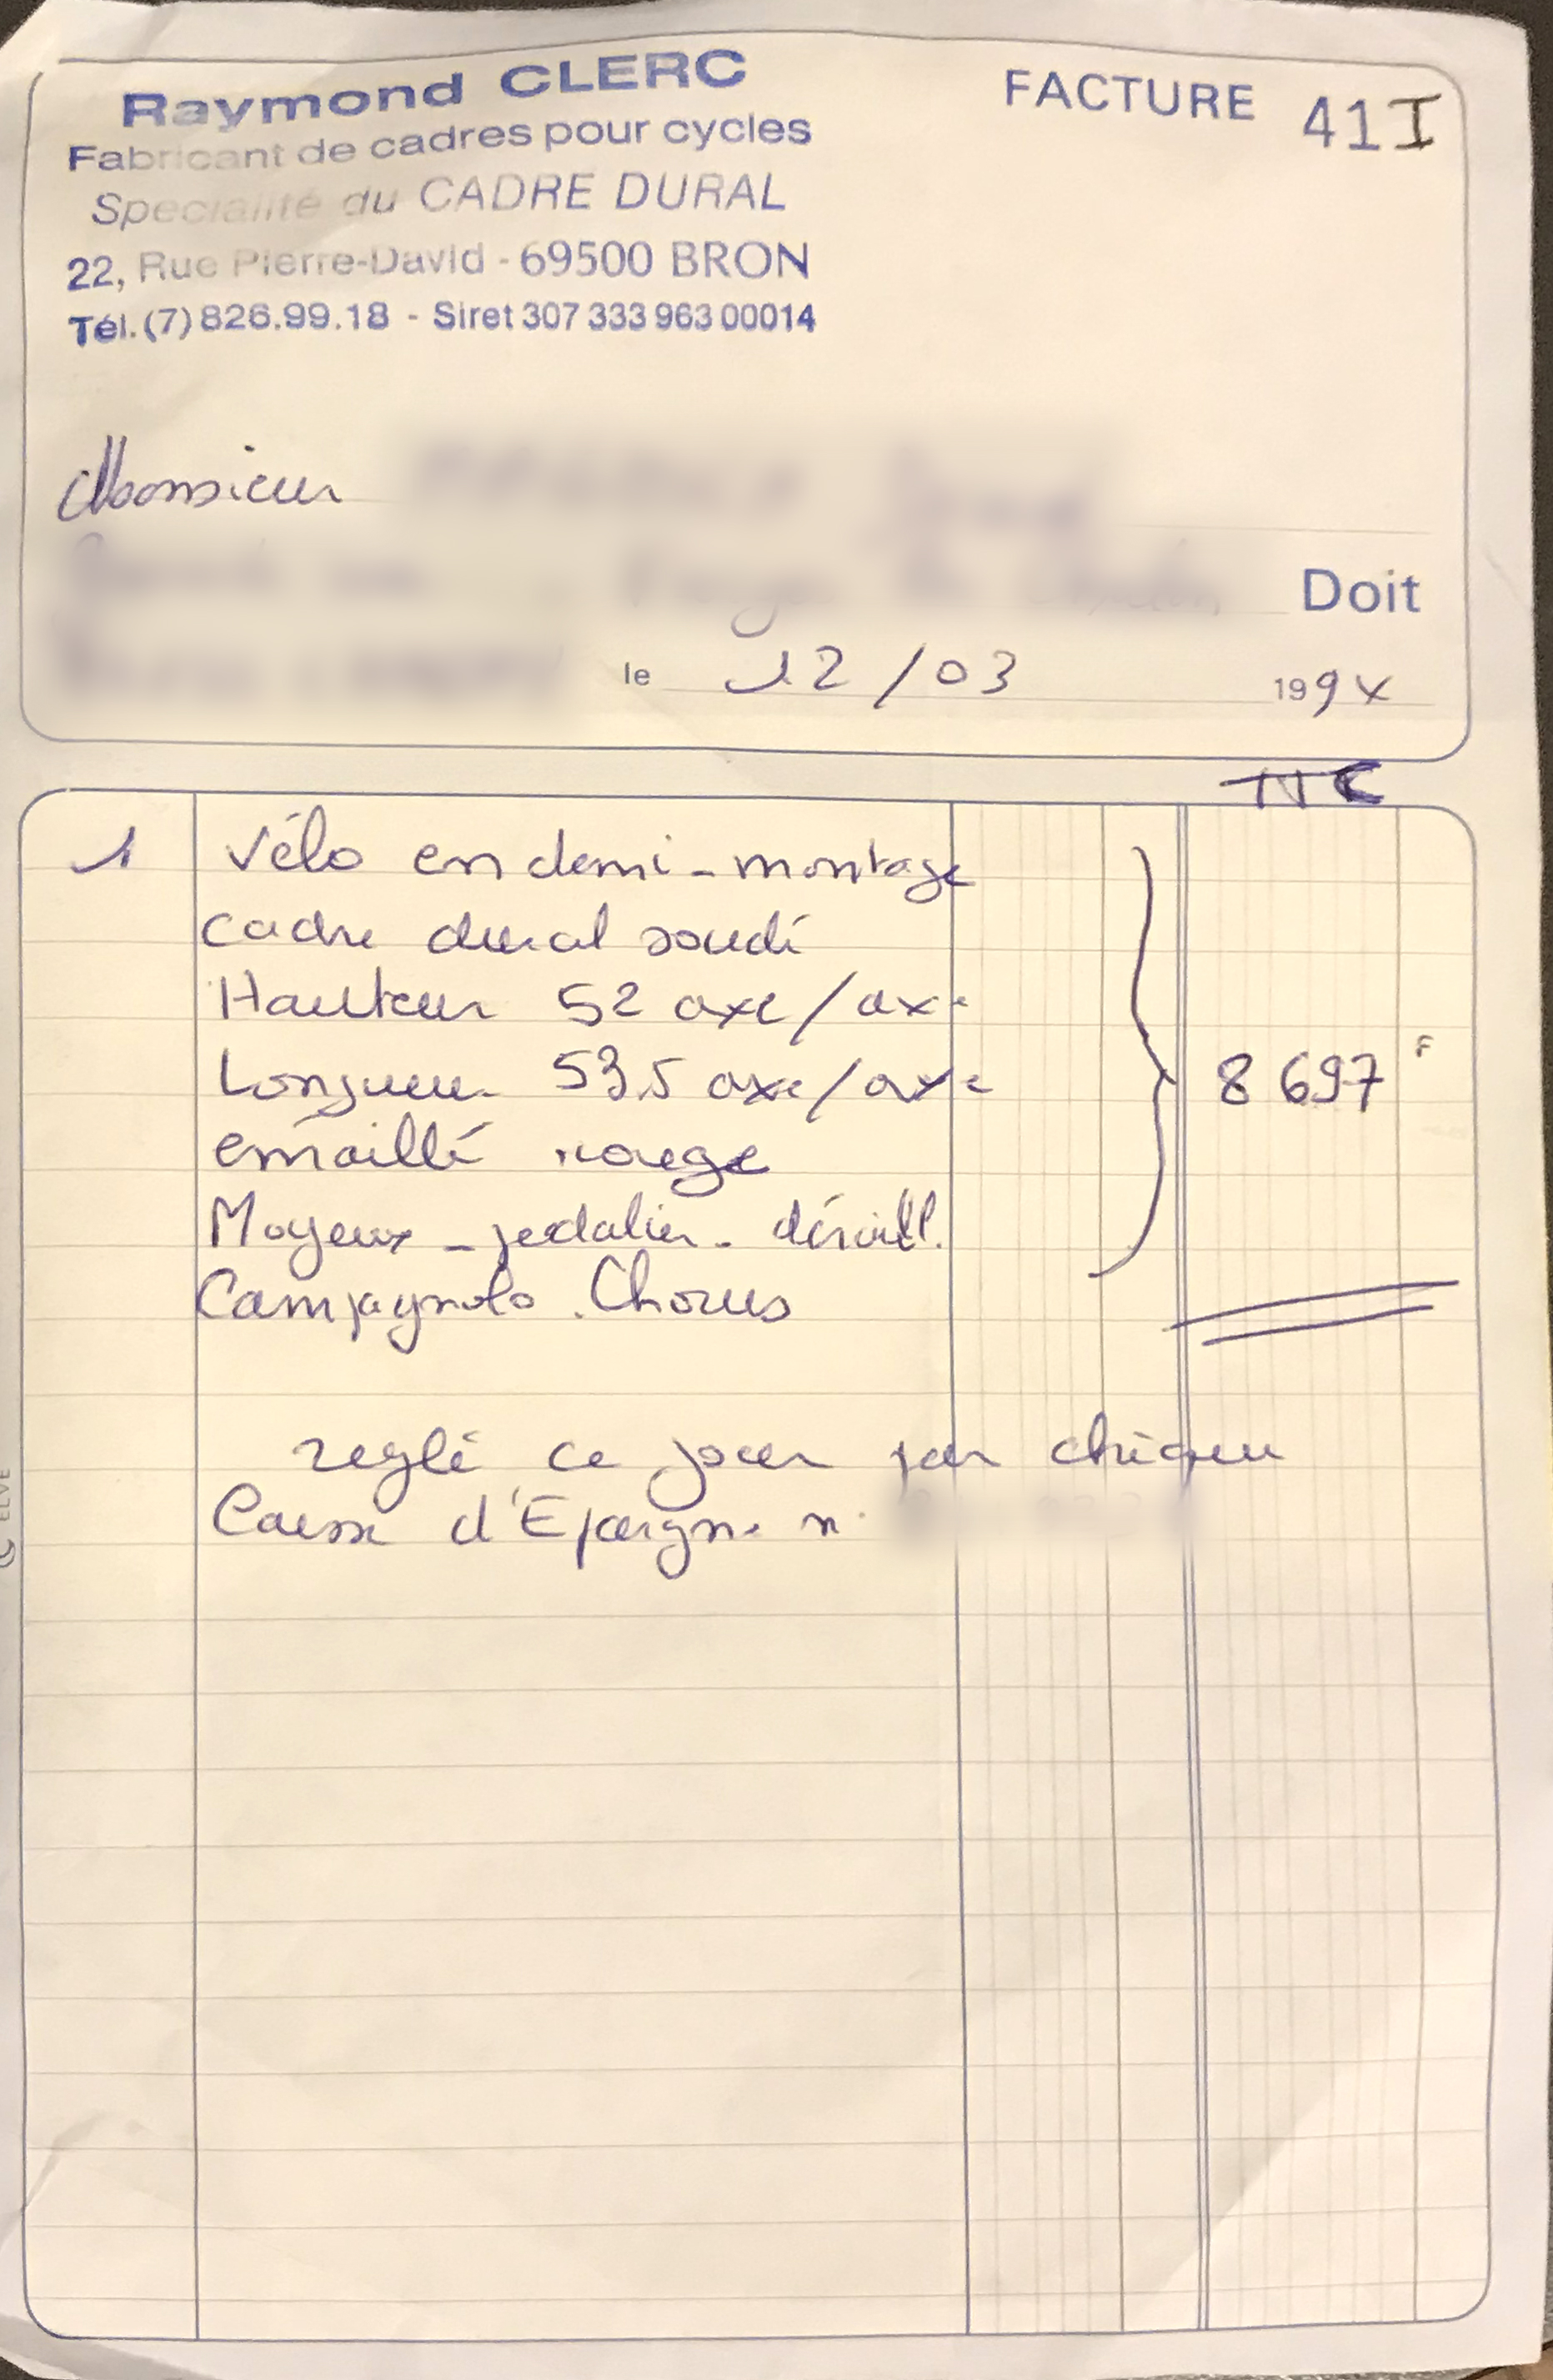 Raymond CLERC
Fabricant de cadres pour cycles
Spécialité du CADRE DURAL
22, Rue Pierre-David - 69500 BRON
Tél. (7) 826.99.18 - Siret 307 333 963 00014
FACTURE 41I
Monsieur
Doit
le 12/03 199
TTC
1 Vélo en demi-montage
cadre dural soudé
Hauteur 52 axe/axe
Longueur 53.5 axe/axe
émaillé rouge
Moyeux - pedalier - déraill.
Campagnolo. Chorus
8 697 F
reglé ce jour par chèque
Caisse d'Epargne n°
ELVE